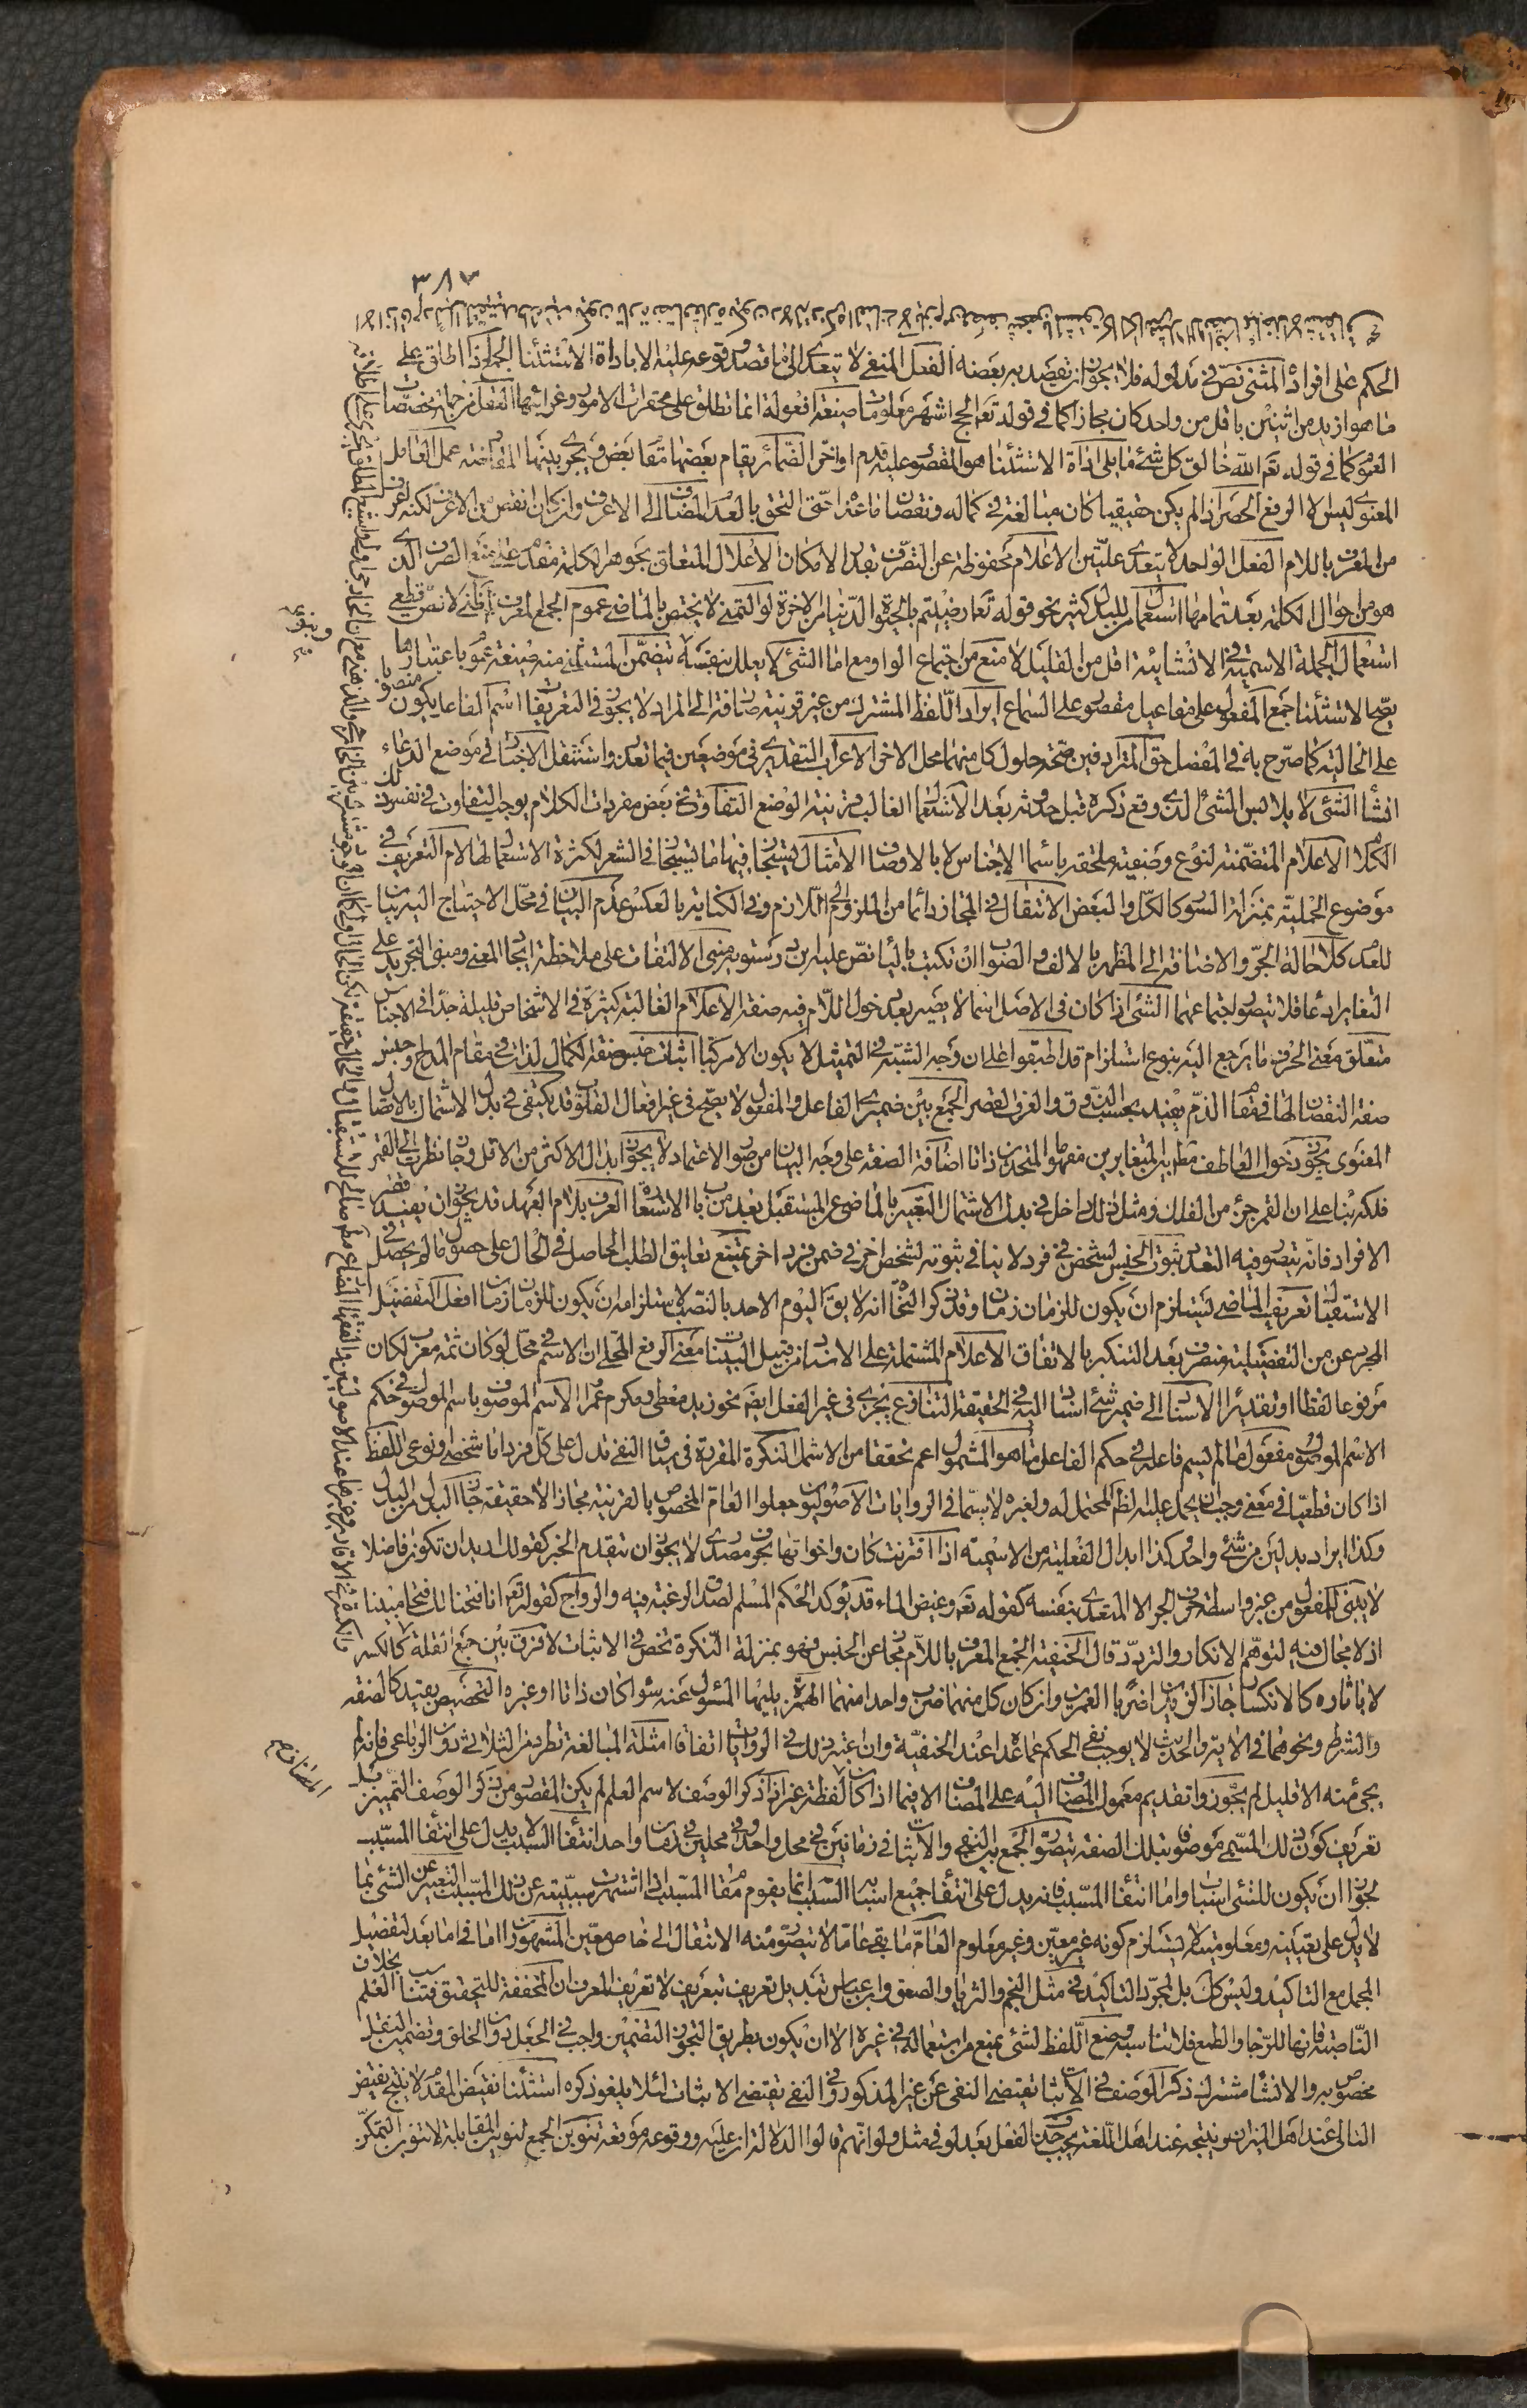 ٣٨٧
الحكم على افراد المثنى نصّ فى مدلوله فلا يجوز ان يقصد به بعضه الفعل المنفى لا يتعدى الى ما قصد وقوعه عليه الا باداة الاستثنا الجمع اذا اطلق على
ما هو ازيد من اثنين باقل من واحد كان مجازا كما فى قوله تع الحج اشهر معلومات صيغة افعولة انما تطلق على محقرات الامور وغرائبها العقل من جملة مخصّصات
العموم كما فى قوله تع الله خالق كل شئ ما يلى اداة الاستثنا هو المقصور عليه قدم او اخر الضمائر يقام بعضها مقام بعض ويجرى بينها المقارضة عمل العامل
المعنوى ليس الا الرفع الحصر اذا لم يكن حقيقيا كان مبالغة فى كماله ونقصان ما عداه حتى التحق بالعدم المضاف الى الاعرف وان كان انقص من الاعرف لكنه اعرف
من المعرف باللام الفعل الواحد لا يتعدى علتين الاعلام محفوظة عن التصرف بقدر الامكان الاعلال المتعلق بجوهر الكلمة مقدم على منع الصرف الذى
هو من احوال الكلمة بعد تمامها استعمال من للبدل كثير نحو قوله تع ارضيتم بالحيوة الدنيا من الاخرة لو التمنى لا يختص بالماضى عموم الجمع المعرف ظنى لا نصّ قطعى
استعمال الجملة الاسمية فى الانشائية اقل من القليل لا منع من اجتماع الواو مع اما الشئ لا يعلل بنفسه تضمن المستثنى منه صيغة عموم باعتبارها
يصح الاستثنا جمع المفعول على مفاعيل مقصور على السماع ايراد اللفظ المشترك من غير قرينة صارفة الى المراد لا يجوز فى التعريفات اسم الفاعل يكون
على الحالية كما صرّح به فى المفصل حق المترادفين صحة حلول كل منهما محل الاخر الاعراب التقديرى فى موضعين فيما تعذر واستثقل الاخبار فى موضع الدعاء
انشا الشئ لا يلابس الشئ الذى وقع ذكره قبل حدوثه بعد الاستعمال الغالب قرينة الوضع التفاوت فى بعض مفردات الكلام يوجب التفاوت فى نفس ذلك
الكلام الاعلام المتضمنة لنوع وصفية ملحقة باسما الاجناس لا بالاوصاف الامثال يستجاز فيها ما يستجاز فى الشعر لكثرة الاستعمال لها لام التعريف فى
موضوع الحملية بمنزلة السور كالكل والبعض الانتقال فى المجاز دائما من الملزوم الى اللازم وفى الكناية بالعكس عدم البيان فى محل الاحتياج اليه بيان
للعدم كلا حالة الجر والاضافة الى المظهر بالالف والصواب ان تكتب بالياء نصّ عليه ابن درستويه مبنى الالتفات على ملاحظة اتحاد المعنى ومبنى التجريد على
التغاير ادعا فلا يتصور اجتماعهما الشئ اذا كان فى الاصل اسما لا يصير بعد دخول اللام فيه صفة الاعلام الغالبة كثيرة فى الاشخاص قليلة جدّا فى الاجناس
متعلق معنى الحرف ما يرجع اليه بنوع استلزام قد اطبقوا على ان وجه الشبه فى التمثيل لا يكون الا مركبا اثبات جنس صفة الكمال لذات فى مقام المدح وجنس
صفة النقصان لها فى مقام الذم يفيد بحسب الذوق والعرف القصر الجمع بين ضميرى الفاعل والمفعول لا يصح فى غير افعال القلوب قد يكتفى فى بدل الاشتمال بالاتصال
المعنوى يجوز دخول العاطف مطلقا بين المتغايرين مفهوما والمتحدين ذاتا اضافة الصفة على وجه البيان من صور الاعتماد لا يجوز ابدال الاكثر من الاقل وجاز نظرت الى القمر
فلكه بنا على ان القمر جزء من الفلك ومثل ذلك داخل فى بدل الاشتمال التعبير بالماضى عن المستقبل يعد من باب الاستعارة المعرف بلام العهد قد يجوز ان يفيد قصر
الافراد فانه يتصور فيه التعدد ثبوت الجنس لشخص فى فرد لا ينافى ثبوته لشخص اخر فى ضمن فرد اخر يمتنع تعليق الطلب الحاصل فى الحال على حصول ما لم يحصل فى
الاستقبال تعريف الماضى يستلزم ان يكون للزمان زمان وقد ذكر النحاة انه لا يق اليوم الاحد بالنصب لاستلزامه ان يكون للزمان زمان افعل التفضيل
المجرد عن من التفضيلية منصرف بعد التنكير بالاتفاق الاعلام المشتملة على الاسناد من قبيل المبنيات معنى الرفع المحلى ان الاسم فى محل لو كان ثمة معرب لكان
مرفوعا لفظا او تقديرا الاسناد الى ضمير شئ اسناد اليه فى الحقيقة التنازع يجرى فى غير الفعل ايض نحو زيد معطى ومكرم عمرا الاسم الموصوف باسم الموصول فى حكم
الاسم الموصول مفعول ما لم يسم فاعله فى حكم الفاعل ما هو المشمول اعم تحققا من الاشمل النكرة المفردة فى سياق النفى تدل على كل فرد اما شخصى او نوعى اللفظ
اذا كان قطعيا فى معنى وجب ان يحمل عليه لفظ المحتمل له ولغيره لا سيما فى الروايات الاصوليون جعلوا العام المخصوص بالقرينة مجازا لا حقيقة جاز البدل من البدل
وكذا ايراد بدلين من شئ واحد وكذا ابدال الفعلية من الاسمية اذا اقترنت كان واخواتها بحرف مصدرى لا يجوز ان يتقدم الخبر كقولك اريد ان تكون فاضلا
لا يبنى للمفعول من غير واسطة حرف الجر الا المتعدى بنفسه كقوله تع وغيض الماء قد يؤكد الحكم المسلم لصدق الرغبة فيه والرواج كقوله تع انا فتحنا لك فتحا مبينا
اذ لا مجال فيه لتوهم الانكار والتردد قال الحنفية الجمع المعرف باللام مجاز عن الجنس فهو بمنزلة النكرة تخص فى الاثبات لا فرق بين جمع القلة كالكسر
لا باثاره كالانكسار جاز الزيدان ضربا العمرين وان كان كل منهما ضرب واحدا منهما الهمزة يليها المسئول عنه سواء كان ذاتا او غيره التخصيص بقيد كالصفة
والشرط ونحوهما فى الاية والحديث لا يوجب نفى الحكم عما عداه عند الحنفية وان اعتبر ذلك فى الروايات اتفاقا امثلة المبالغة تطرد من الثلاثى دون الرباعى فانه لم
يجئ منه الا قليل لم يجوزوا تقديم معمول المضاف اليه على المضاف الا فيما اذا كان لفظة غير اذا ذكر الوصف لاسم العلم لم يكن المقصود من ذكر الوصف التمييز بل
تعريف كون ذلك المسمى موصوفا بتلك الصفة يتصور الجمع بين النفى والاثبات فى زمانين فى محل واحد وفى محلين فى زمان واحد انتفا السبب لا يدل على انتفا المسبب
لجواز ان يكون للشئ اسباب واما انتفا المسبب فانه يدل على انتفا جميع اسبابه السبب انما يقوم مقام المسبب اذا اشتهرت مسببيته عن ذلك السبب التعبير عن الشئ بما
لا يدل على تعيينه ومعلوميته لا يستلزم كونه غير معين وغير معلوم العام ما بقى عاما لا يتصور منه الانتقال الى خاص معين المشهور ان اما فى اما بعد لتفضيل
المجمل مع التاكيد وليس كك بل لمجرد التاكيد فى مثل النجم والثريا والصعق وابن عباس تبديل تعريف بتعريف لا تعريف المعرف ان المخففة للتحقيق فتناسب العلم بخلاف
الناصبة فانها للرجا والطمع فلا تناسبه وضع اللفظ لشئ يمنع من استعماله فى غيره الا ان يكون بطريق التجوز التضمين واجب فى الجعل دون الخلق وتضمين النقل
مخصوص به والانشا مشترك ذكر الوصف فى الاثبات يقتضى النفى عن غير المذكور وفى النفى يقتضى الاثبات لئلا يلغو ذكره استثنا نقيض المقدم لا ينتج نقيض
التالى عند اهل الميزان وينتجه عند اهل اللغة يجب حذف الفعل بعد لو فى مثل ولو انهم قالوا لدلالة ان عليه ووقوعه موقعه تنوين الجمع تنوين المقابلة لا تنوين التمكن